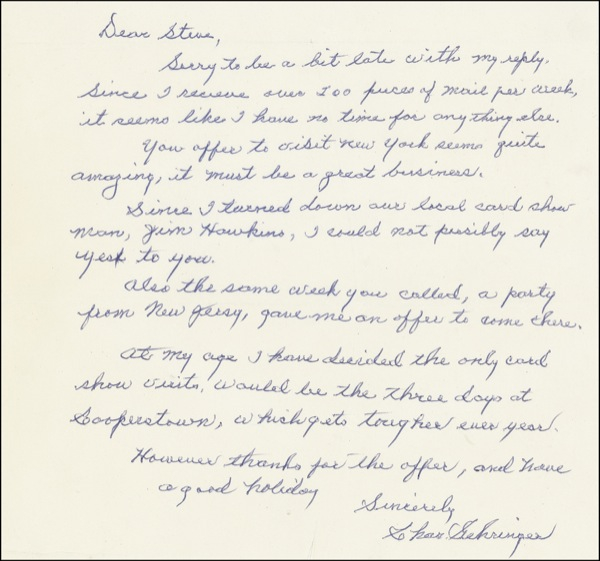 Dear Steve,
Sorry to be a bit late with my reply.
Since I recieve over 200 pieces of mail per week,
it seems like I have no time for anything else.
You offer to visit New York seems quite
amazing, it must be a great business.
Since I turned down our local card show
man, Jim Hawkins, I could not possibly say
yes to you.
Also the same week you called, a party
from New Jersy, gave me an offer to come there.
At my age I have decided the only card
show visits, would be the three days at
Cooperstown, which gets tougher ever year.
However thanks for the offer, and have
a good holiday
Sincerely
Chas. Gehringer